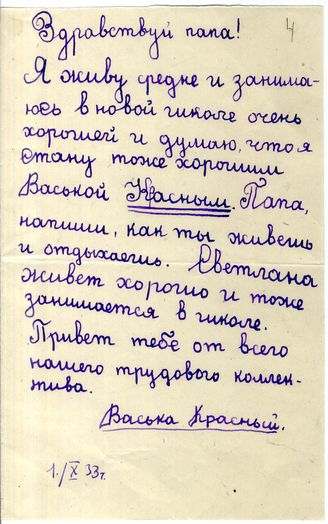 4
Здравствуй папа!
Я живу средне и занима-
юсь в новой школе очень
хорошей и думаю, что я
стану тоже хорошим
Васькой Красным. Папа,
напиши, как ты живешь
и отдыхаешь. Светлана
живет хорошо и тоже
занимается в школе.
Привет тебе от всего
нашего трудового коллек-
тива.
Васька Красный.
1./X 33г.